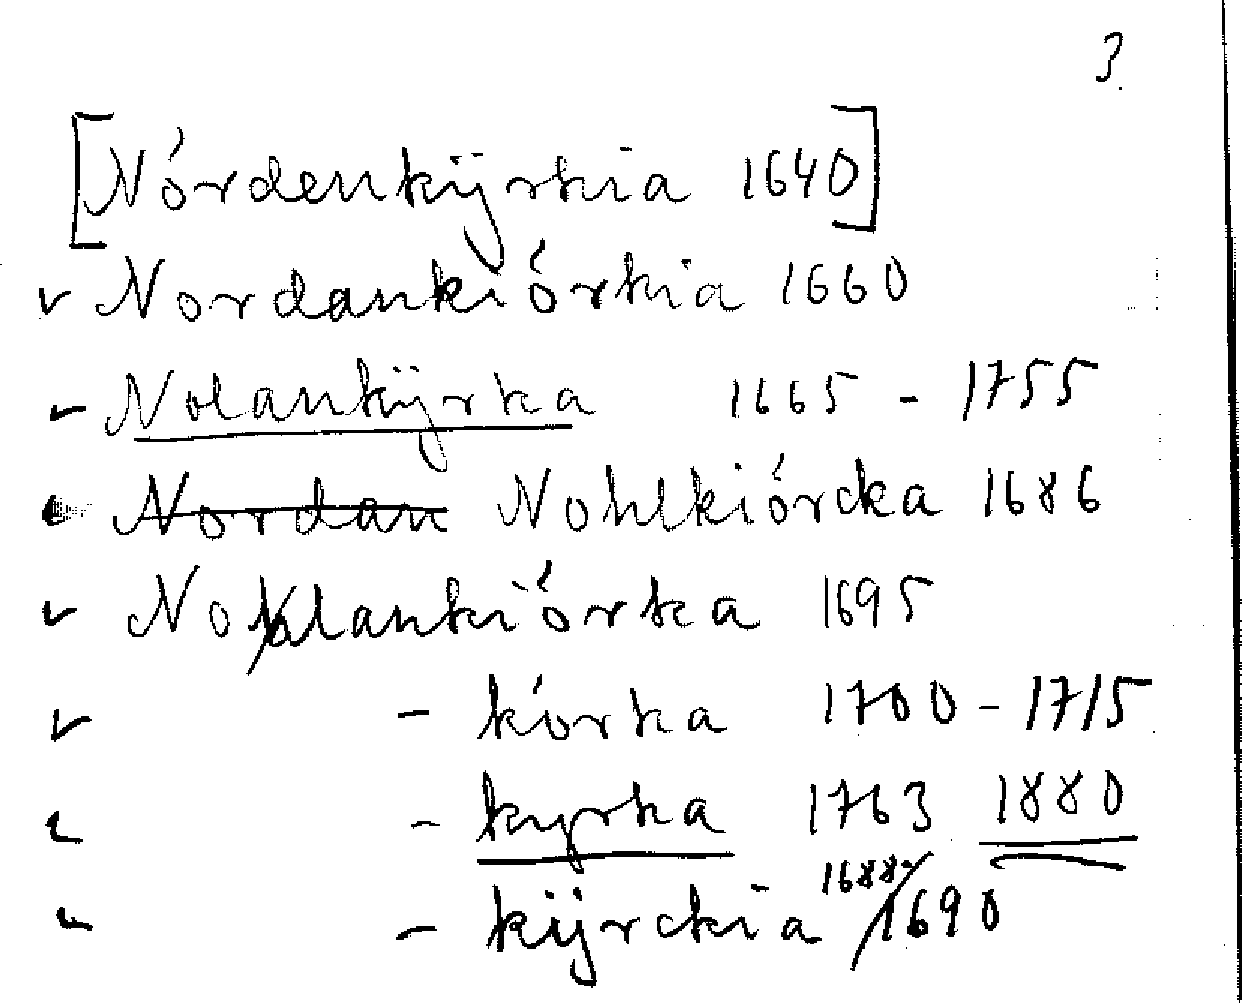 3.
[Nórdenkijrkia 1640]
Nordankiórkia 1660
Nolankijrka 1665 - 1755
Nordan Nohlkiórcka 1686
Nolankiórka 1695
- kórka 1700 - 1715
- kyrka 1763 1880
- kijrckia 1688/1690